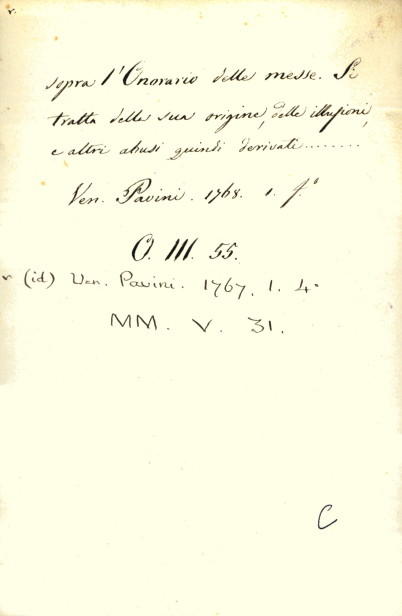 sopra l'Onorario delle messe. Si
tratta della sua origine, delle illusioni,
e altri abusi quindi derivati........
Ven. Pavini. 1768. 1. f.º
O. III. 55.
(id) Ven. Pavini. 1767. 1. 4.
MM. V. 31.
C